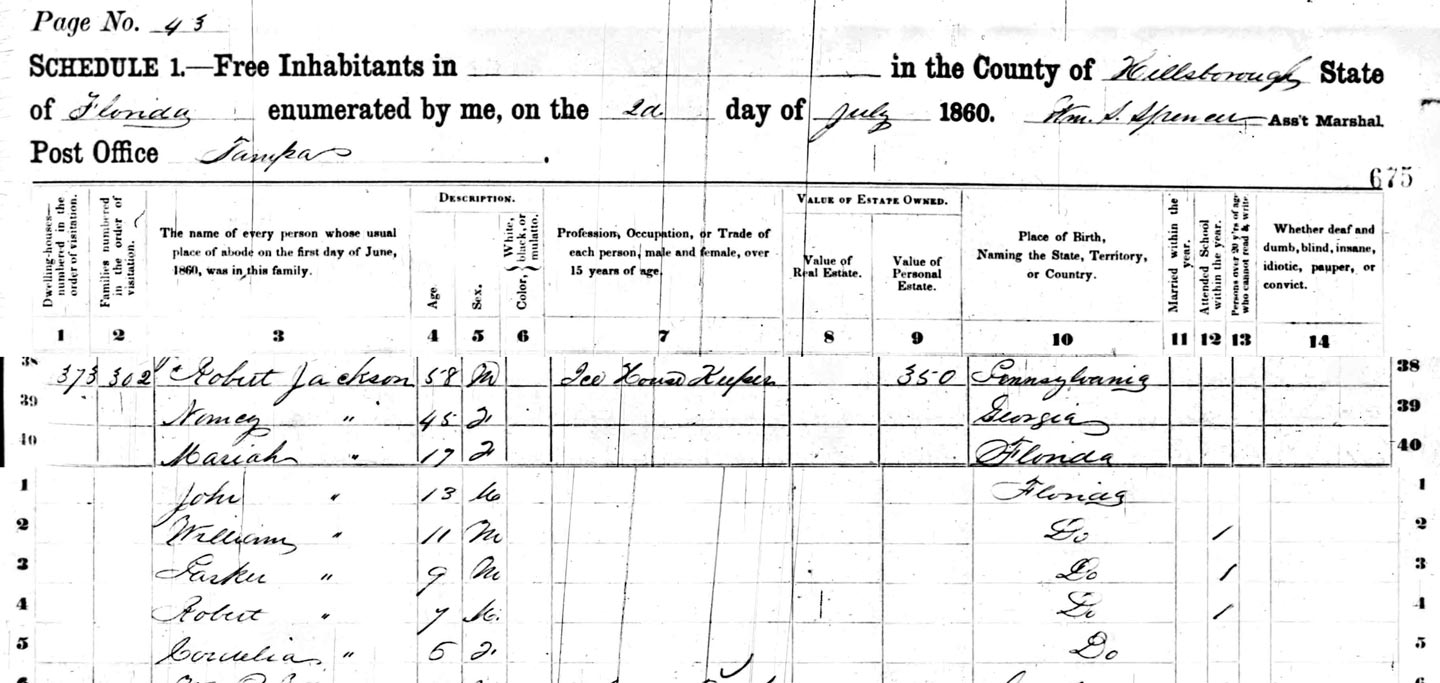 Page No. 43
SCHEDULE 1.—Free Inhabitants in in the County of Hillsborough State
of Florida enumerated by me, on the 2d day of July 1860. Wm. S. Spencer Ass't Marshal.
Post Office Tampa .
675
DESCRIPTION. VALUE OF ESTATE OWNED.
Dwelling-houses—numbered in the order of visitation.
Families numbered in the order of visitation.
The name of every person whose usual
place of abode on the first day of June,
1860, was in this family.
Age.
Sex.
Color, { White, black, or mulatto.
Profession, Occupation, or Trade of
each person, male and female, over
15 years of age.
Value of
Real Estate.
Value of
Personal
Estate.
Place of Birth,
Naming the State, Territory,
or Country.
Married within the year.
Attended School within the year.
Persons over 20 y'rs of age who cannot read & write
Whether deaf and
dumb, blind, insane,
idiotic, pauper, or
convict.
1 2 3 4 5 6 7 8 9 10 11 12 13 14
38 373 302 Robert Jackson 58 M Ice House Keeper 350 Pennsylvania 38
39 Nancy " 45 F Georgia 39
40 Mariah " 17 F Florida 40
1 John " 13 M Florida 1
2 William " 11 M Do / 2
3 " 9 M Do / 3
4 Robert " 7 M. Do / 4
5 Cornelia " 5 F Do 5
6 6